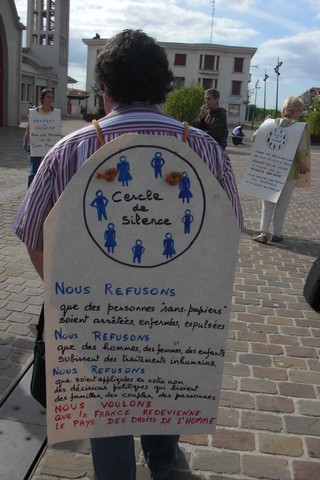 Cercle
de
Silence
Nous Refusons
que des personnes "sans-papiers"
soient arrêtées, enfermées, expulsées
Nous Refusons
que des hommes, des femmes, des enfants
subissent des traitements inhumains.
Nous Refusons
que soient appliquées en notre nom
des décisions politiques qui broient
des familles, des couples, des personnes
Nous voulons
que la France redevienne
le pays des droits de l'homme